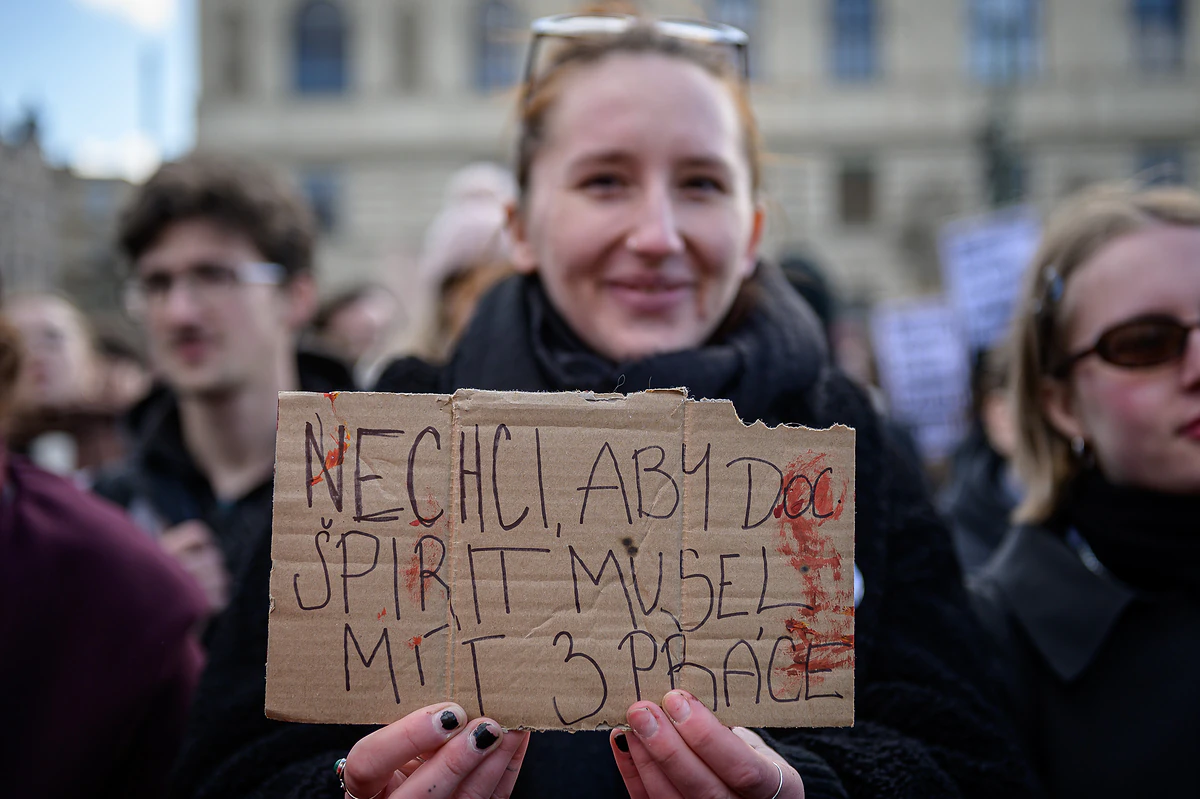 NECHCI, ABY DOC
ŠPIRIT MUSEL
MÍT 3 PRÁCE